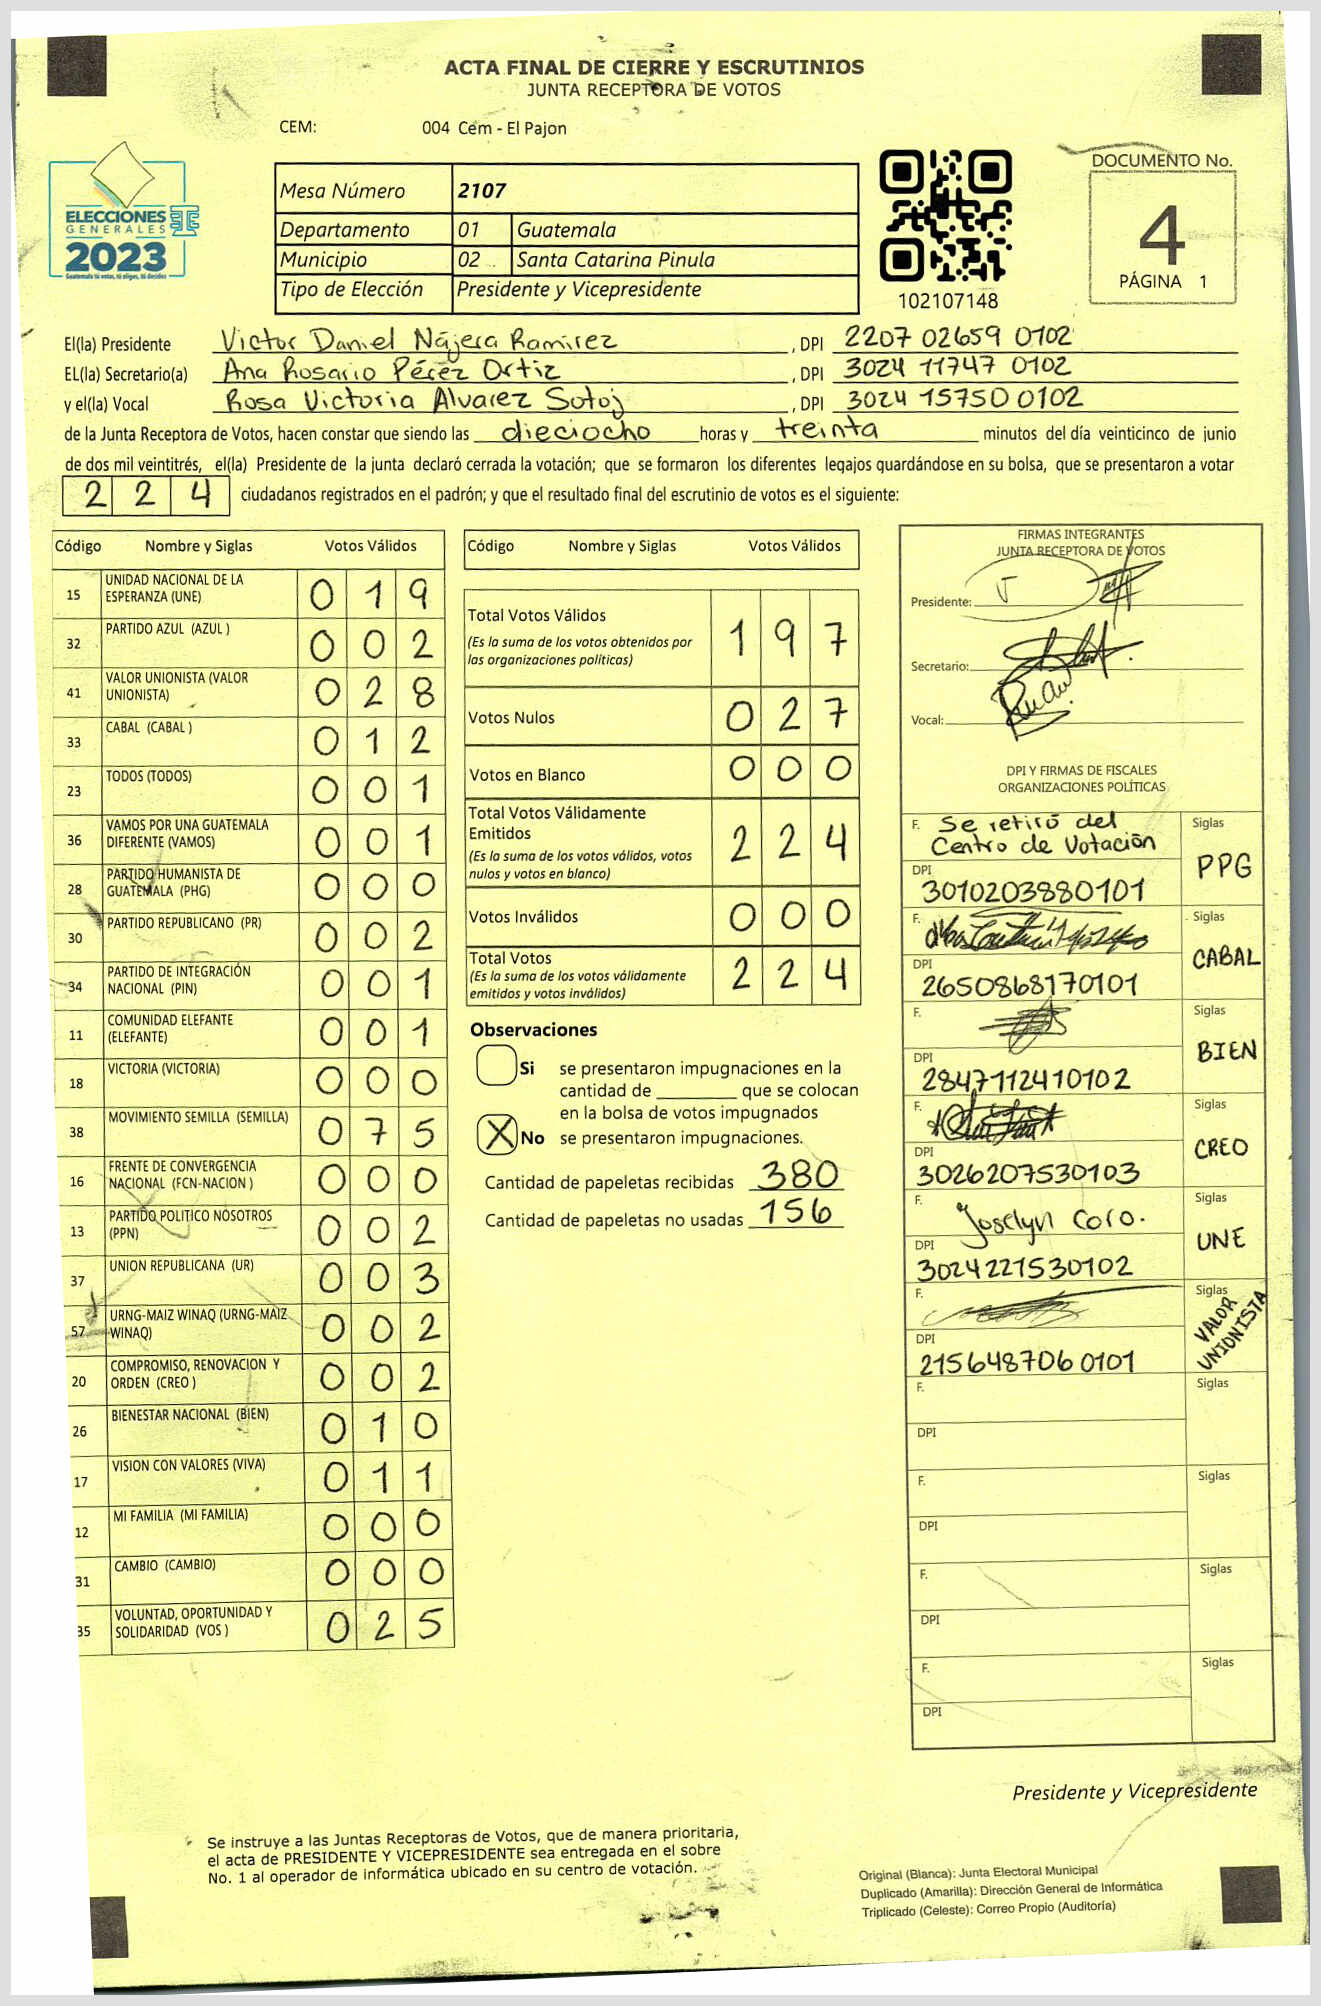 ACTA FINAL DE CIERRE Y ESCRUTINIOS
JUNTA RECEPTORA DE VOTOS
CEM: 004 Cem - El Pajon
ELECCIONES
GENERALES
2023
Guatemala tú votas, tú eliges, tú decides
Mesa Número 2107
Departamento 01 Guatemala
Municipio 02 Santa Catarina Pinula
Tipo de Elección Presidente y Vicepresidente
102107148
DOCUMENTO No.
4
PÁGINA 1
El(la) Presidente Victor Daniel Nájera Ramirez , DPI 2207 02659 0102
EL(la) Secretario(a) Ana Rosario Pérez Ortiz , DPI 3024 11747 0102
y el(la) Vocal Rosa Victoria Alvarez Sotoj , DPI 3024 15750 0102
de la Junta Receptora de Votos, hacen constar que siendo las dieciocho horas y treinta minutos del día veinticinco de junio
de dos mil veintitrés, el(la) Presidente de la junta declaró cerrada la votación; que se formaron los diferentes legajos guardándose en su bolsa, que se presentaron a votar
2 2 4 ciudadanos registrados en el padrón; y que el resultado final del escrutinio de votos es el siguiente:
Código Nombre y Siglas Votos Válidos
15 UNIDAD NACIONAL DE LA ESPERANZA (UNE) 0 1 9
32 PARTIDO AZUL (AZUL ) 0 0 2
41 VALOR UNIONISTA (VALOR UNIONISTA) 0 2 8
33 CABAL (CABAL ) 0 1 2
23 TODOS (TODOS) 0 0 1
36 VAMOS POR UNA GUATEMALA DIFERENTE (VAMOS) 0 0 1
28 PARTIDO HUMANISTA DE GUATEMALA (PHG) 0 0 0
30 PARTIDO REPUBLICANO (PR) 0 0 2
34 PARTIDO DE INTEGRACIÓN NACIONAL (PIN) 0 0 1
11 COMUNIDAD ELEFANTE (ELEFANTE) 0 0 1
18 VICTORIA (VICTORIA) 0 0 0
38 MOVIMIENTO SEMILLA (SEMILLA) 0 7 5
16 FRENTE DE CONVERGENCIA NACIONAL (FCN-NACION ) 0 0 0
13 PARTIDO POLITICO NOSOTROS (PPN) 0 0 2
37 UNION REPUBLICANA (UR) 0 0 3
57 URNG-MAIZ WINAQ (URNG-MAIZ WINAQ) 0 0 2
20 COMPROMISO, RENOVACION Y ORDEN (CREO ) 0 0 2
26 BIENESTAR NACIONAL (BIEN) 0 1 0
17 VISION CON VALORES (VIVA) 0 1 1
12 MI FAMILIA (MI FAMILIA) 0 0 0
31 CAMBIO (CAMBIO) 0 0 0
35 VOLUNTAD, OPORTUNIDAD Y SOLIDARIDAD (VOS ) 0 2 5
Código Nombre y Siglas Votos Válidos
Total Votos Válidos 1 9 7
(Es la suma de los votos obtenidos por
las organizaciones políticas)
Votos Nulos 0 2 7
Votos en Blanco 0 0 0
Total Votos Válidamente
Emitidos 2 2 4
(Es la suma de los votos válidos, votos
nulos y votos en blanco)
Votos Inválidos 0 0 0
Total Votos 2 2 4
(Es la suma de los votos válidamente
emitidos y votos inválidos)
Observaciones
Si se presentaron impugnaciones en la
cantidad de ________ que se colocan
en la bolsa de votos impugnados
X No se presentaron impugnaciones.
Cantidad de papeletas recibidas 380
Cantidad de papeletas no usadas 156
FIRMAS INTEGRANTES
JUNTA RECEPTORA DE VOTOS
Presidente:
Secretario:
Vocal:
DPI Y FIRMAS DE FISCALES
ORGANIZACIONES POLÍTICAS
F. Se retiró del Siglas
Centro de Votación PPG
DPI
3010203880101
F. Siglas
CABAL
DPI
2650868170101
F. Siglas
BIEN
DPI
2847112410102
F. Siglas
CREO
DPI
3026207530103
F. Joselyn Coro. Siglas
UNE
DPI
3024221530102
F. Siglas
VALOR
UNIONISTA
DPI
2156487060101
F. Siglas
DPI
F. Siglas
DPI
F. Siglas
DPI
F. Siglas
DPI
Presidente y Vicepresidente
Se instruye a las Juntas Receptoras de Votos, que de manera prioritaria,
el acta de PRESIDENTE Y VICEPRESIDENTE sea entregada en el sobre
No. 1 al operador de informática ubicado en su centro de votación.
Original (Blanca): Junta Electoral Municipal
Duplicado (Amarilla): Dirección General de Informática
Triplicado (Celeste): Correo Propio (Auditoría)